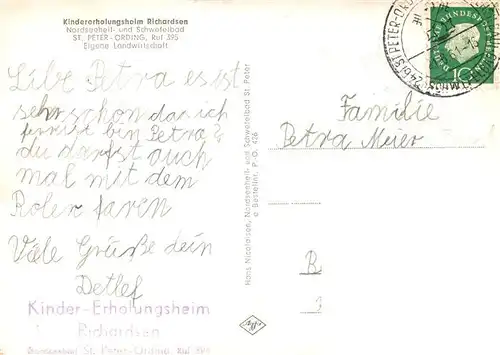 Kindererholungsheim Richardsen
Nordseeheil- und Schwefelbad
ST. PETER-ORDING, Ruf 395
Eigene Landwirtschaft
Libe Petra es ist
sehr schon das ich
bin Petra
du darfst auch
mal mit dem
Roler faren
Väle Grüße dein
Detlef
Kinder-Erholungsheim
Richardsen
St. Peter-Ording, Ruf 395
Hans Nicolaisen, Nordseeheil- und Schwefelbad St. Peter
Bestellnr. P.-O. 426
Agfa
ST. PETER-ORDING
10
Familie
Petra Meier
B